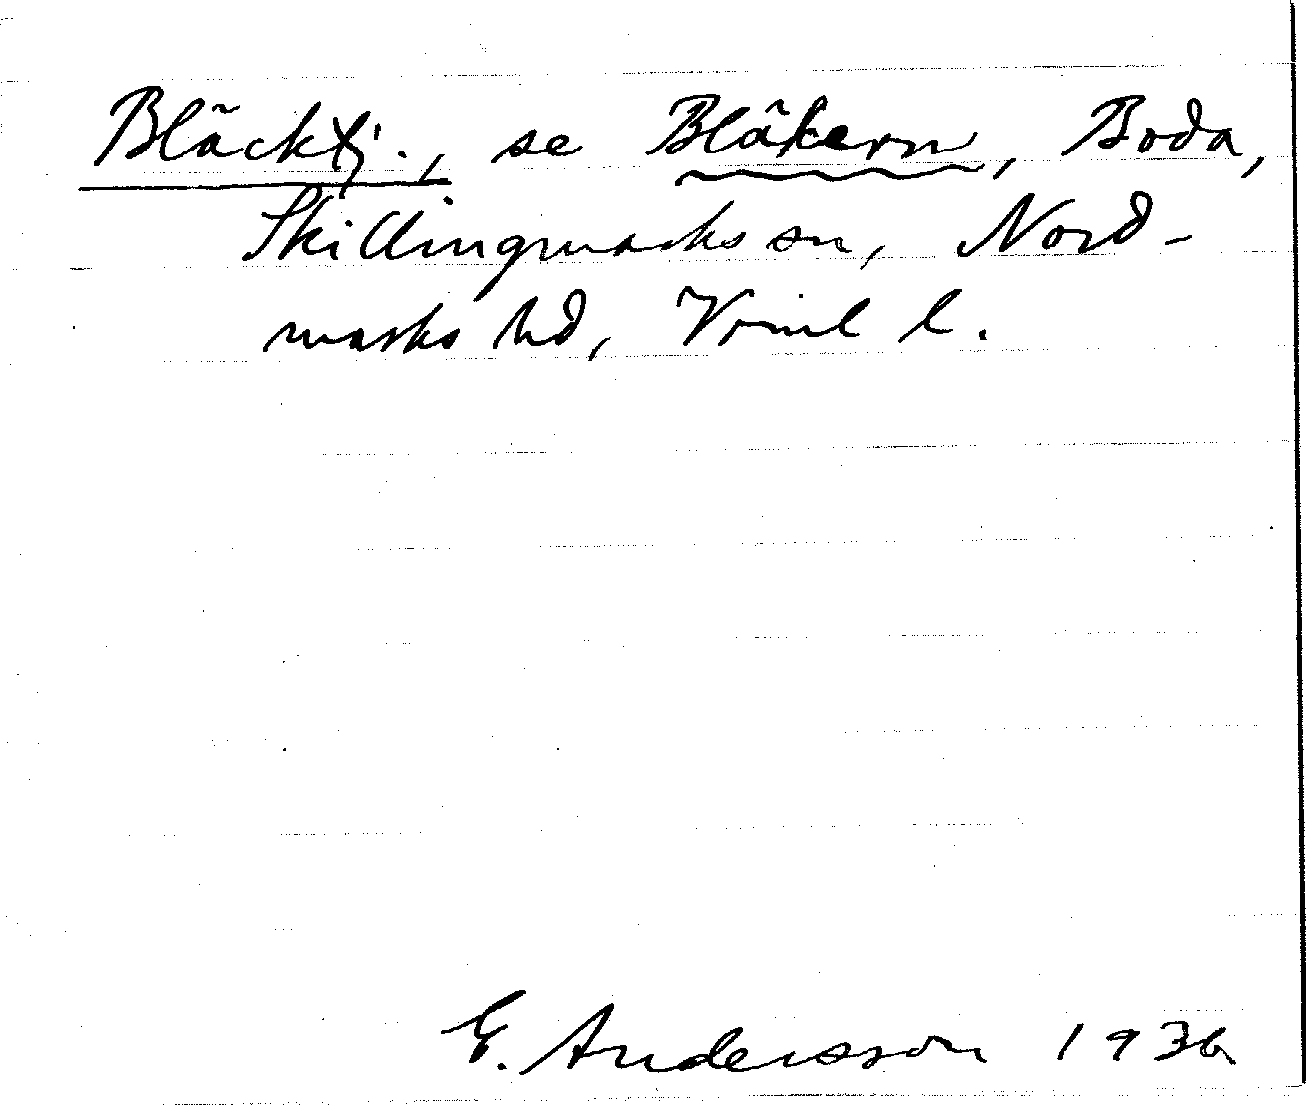 Bläcktj., se Bläkern, Boda,
Skillingmarks sn, Nord-
marks hd, Vrml l.
E. Andersson 1936